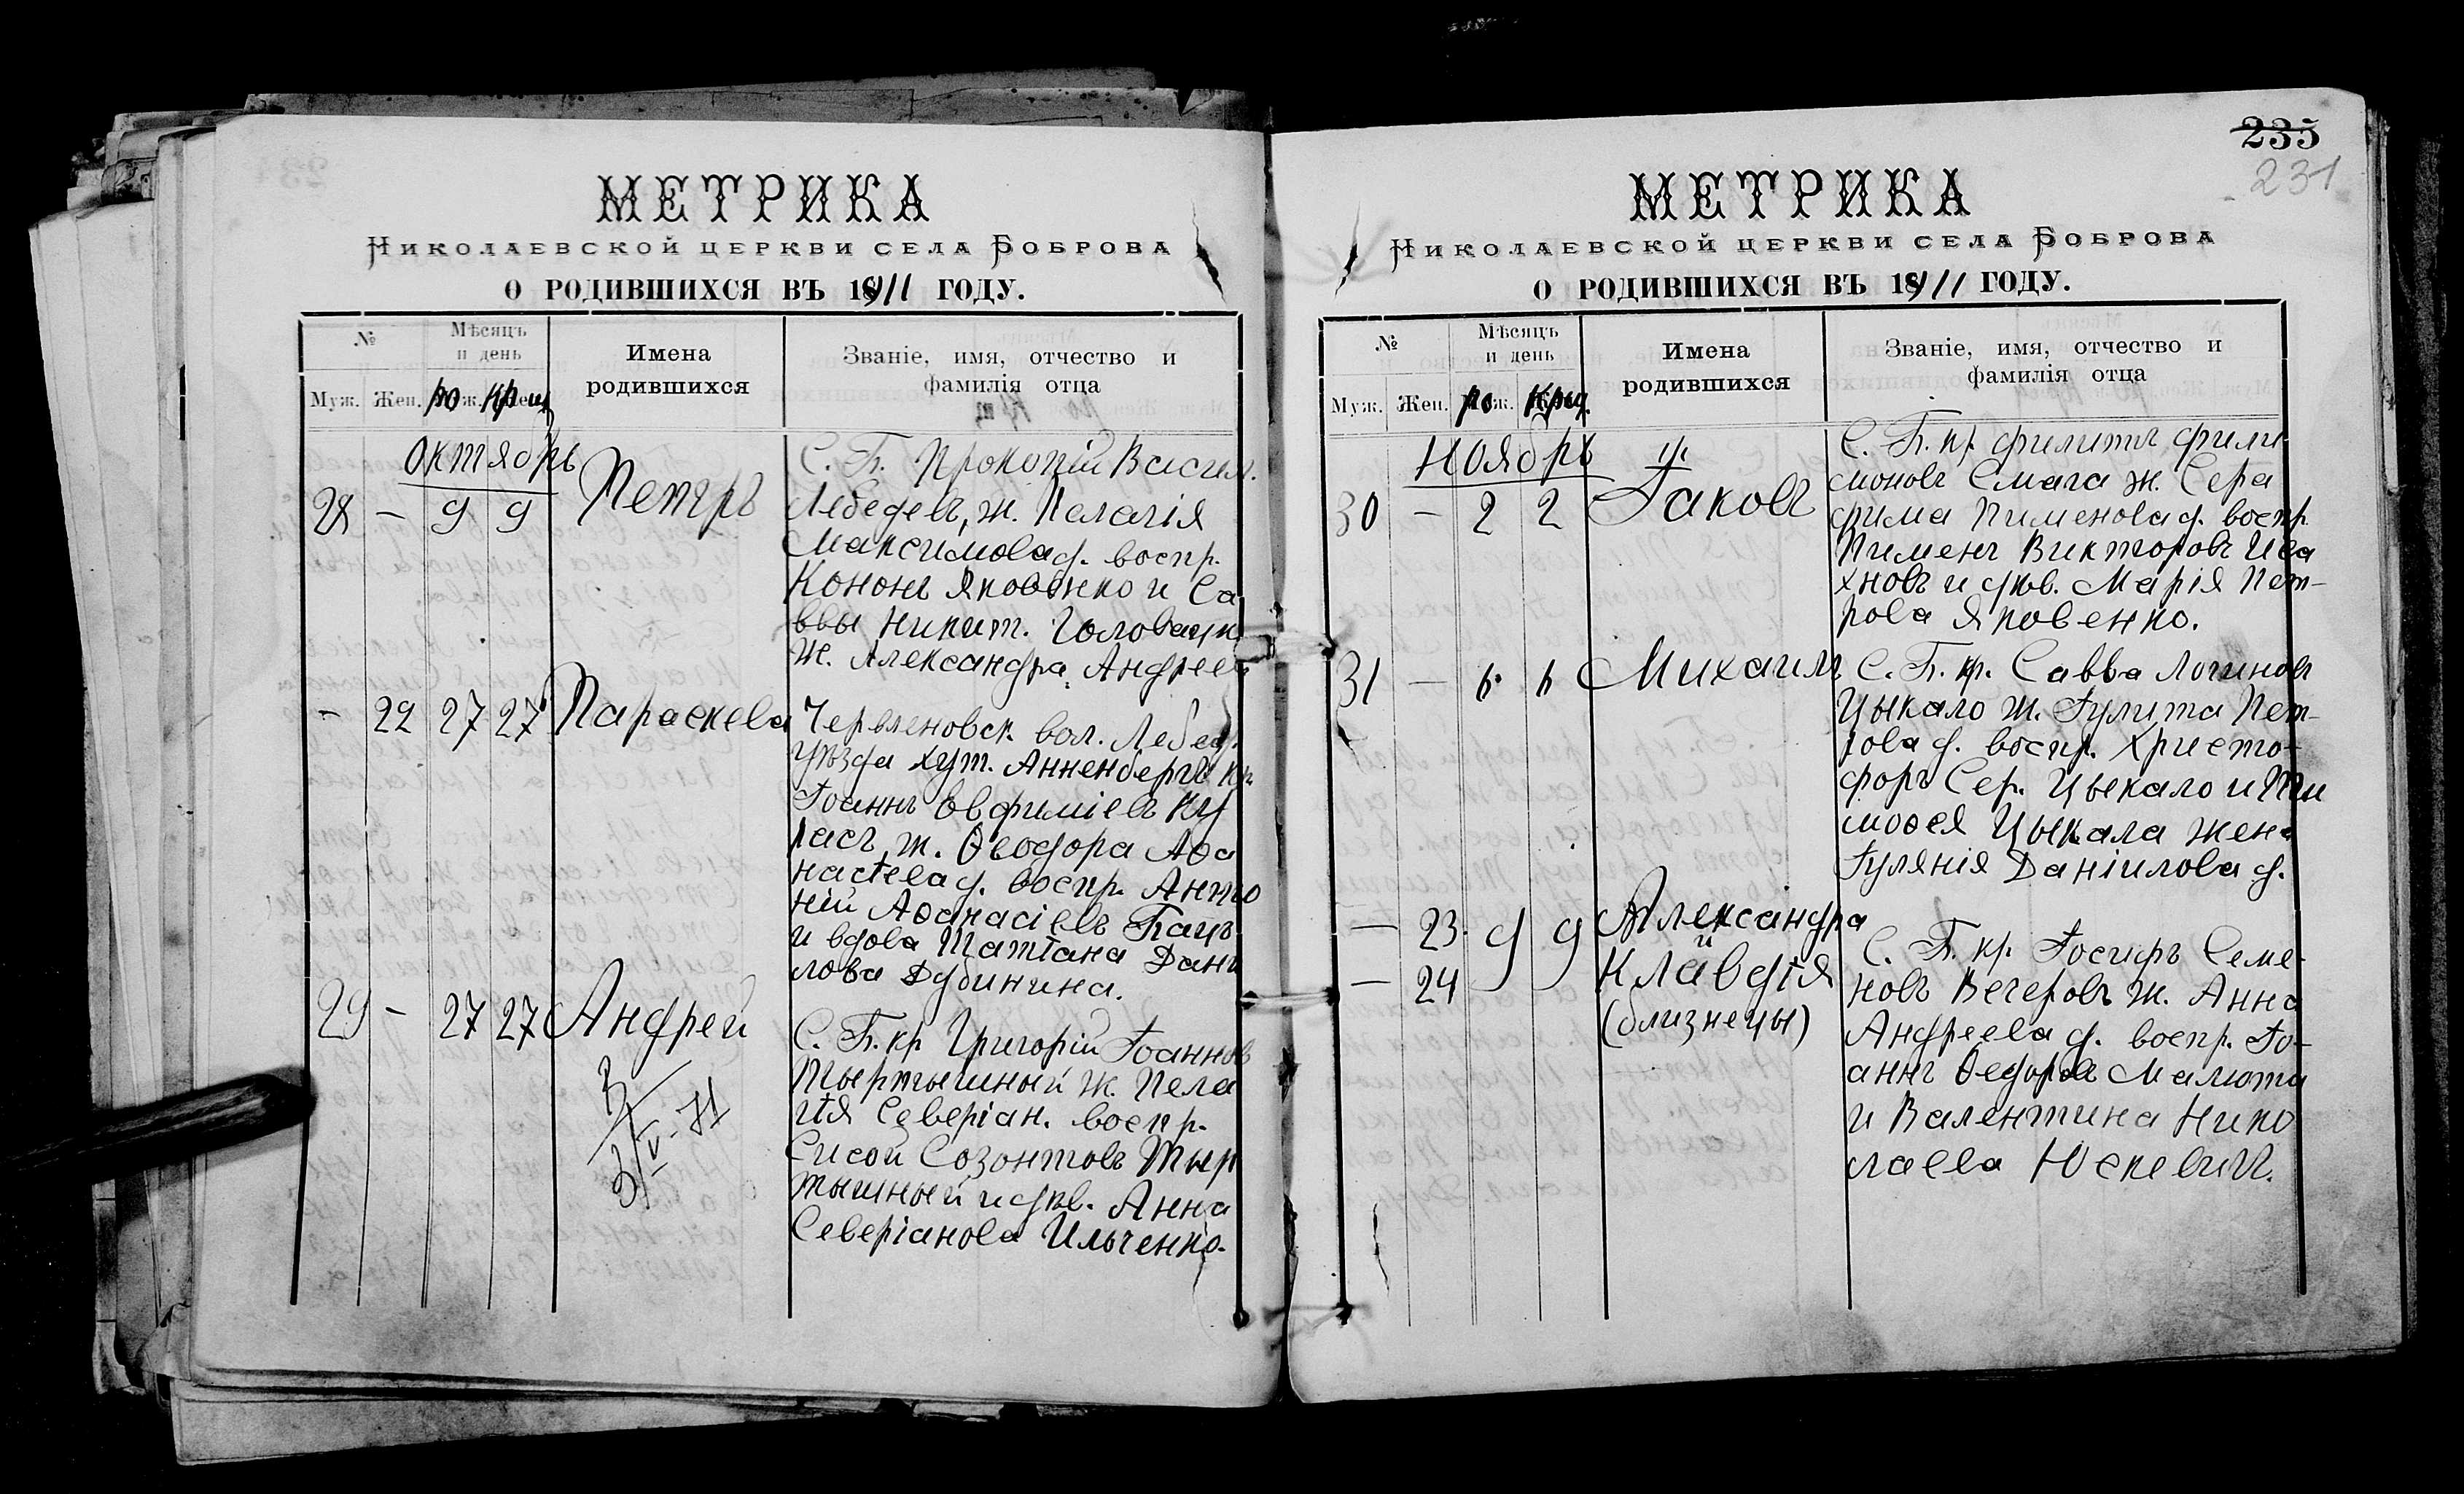 МЕТРИКА
Николаевской церкви села Боброва
О РОДИВШИХСЯ ВЪ 1911 ГОДУ.
№
Мѣсяцъ и день
Имена родившихся
Званіе, имя, отчество и фамилія отца
Муж. Жен. ро Крещ
Октябрь
28 — 9 9 Петръ
С. Б. Прокопій Васил.
Лебедевъ, ж. Пелагія
Максимова д. воспр.
Кононъ Яковенко и Са
ввы Никит. Головацк
ж. Александра Андреев
— 22 27 27 Параскева
Червленовск. вол. Лебед.
уѣзда хут. Анненбергъ кр.
Іоаннъ Евфиміевъ Ку
расъ, ж. Ѳеодора Аѳа
насіева д. воспр. Анто
ній Аѳанасіевъ Бацъ
и вдова Татіана Дани
лова Дубинина.
29 — 27 27 Андрей
С. Б. кр Григорій Іоаннов
Тыртышный ж. Пела
гія Северіан. воспр.
Сисой Созонтовъ Тыр
тышный и дѣв. Анна
Северіанова Ильченко.
3/V-71
235
231
МЕТРИКА
Николаевской церкви села Боброва
О РОДИВШИХСЯ ВЪ 1911 ГОДУ.
№
Мѣсяцъ и день
Имена родившихся
Званіе, имя, отчество и фамилія отца
Муж. Жен. ро Крещ.
Ноябрь
30 — 2 2 Іаковъ
С. Б. кр. Филиппъ Фили
моновъ Смага ж. Сера
фима Пименова д. воспр.
Пименъ Викторовъ Ива
хновъ и дѣв. Марія Пет-
рова Яковенко.
31 — 6 6 Михаилъ
С. Б. кр. Савва Логиновъ
Цыкало ж. Іулита Пет-
рова д. воспр. Христо-
форъ Сер. Цыкало и Ти
моѳея Цыкала жена
Іулянія Даніилова д.
— 23 9 9 Александра
и
— 24 Клавдія
(близнецы)
С. Б. кр Іосифъ Семе-
новъ Вечеровъ ж. Анна
Андреева д. воспр. Іо-
аннъ Ѳедоровъ Малюта
и Валентина Нико
лаева Юскевич.